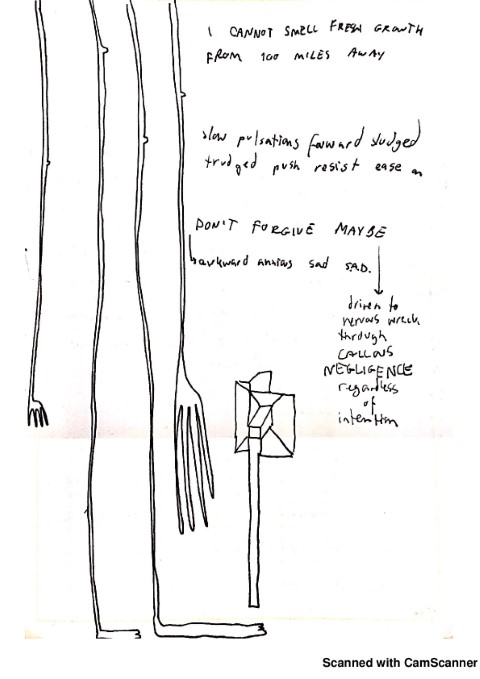 I CANNOT SMELL FRESH GROWTH
FROM 100 MILES AWAY
slow pulsations forward sludged
trudged push resist ease on
DON'T FORGIVE MAYBE
awkward anxious sad SAD.
driven to
nervous wreck
through
CALLOUS
NEGLIGENCE
regardless
of
intention
Scanned with CamScanner